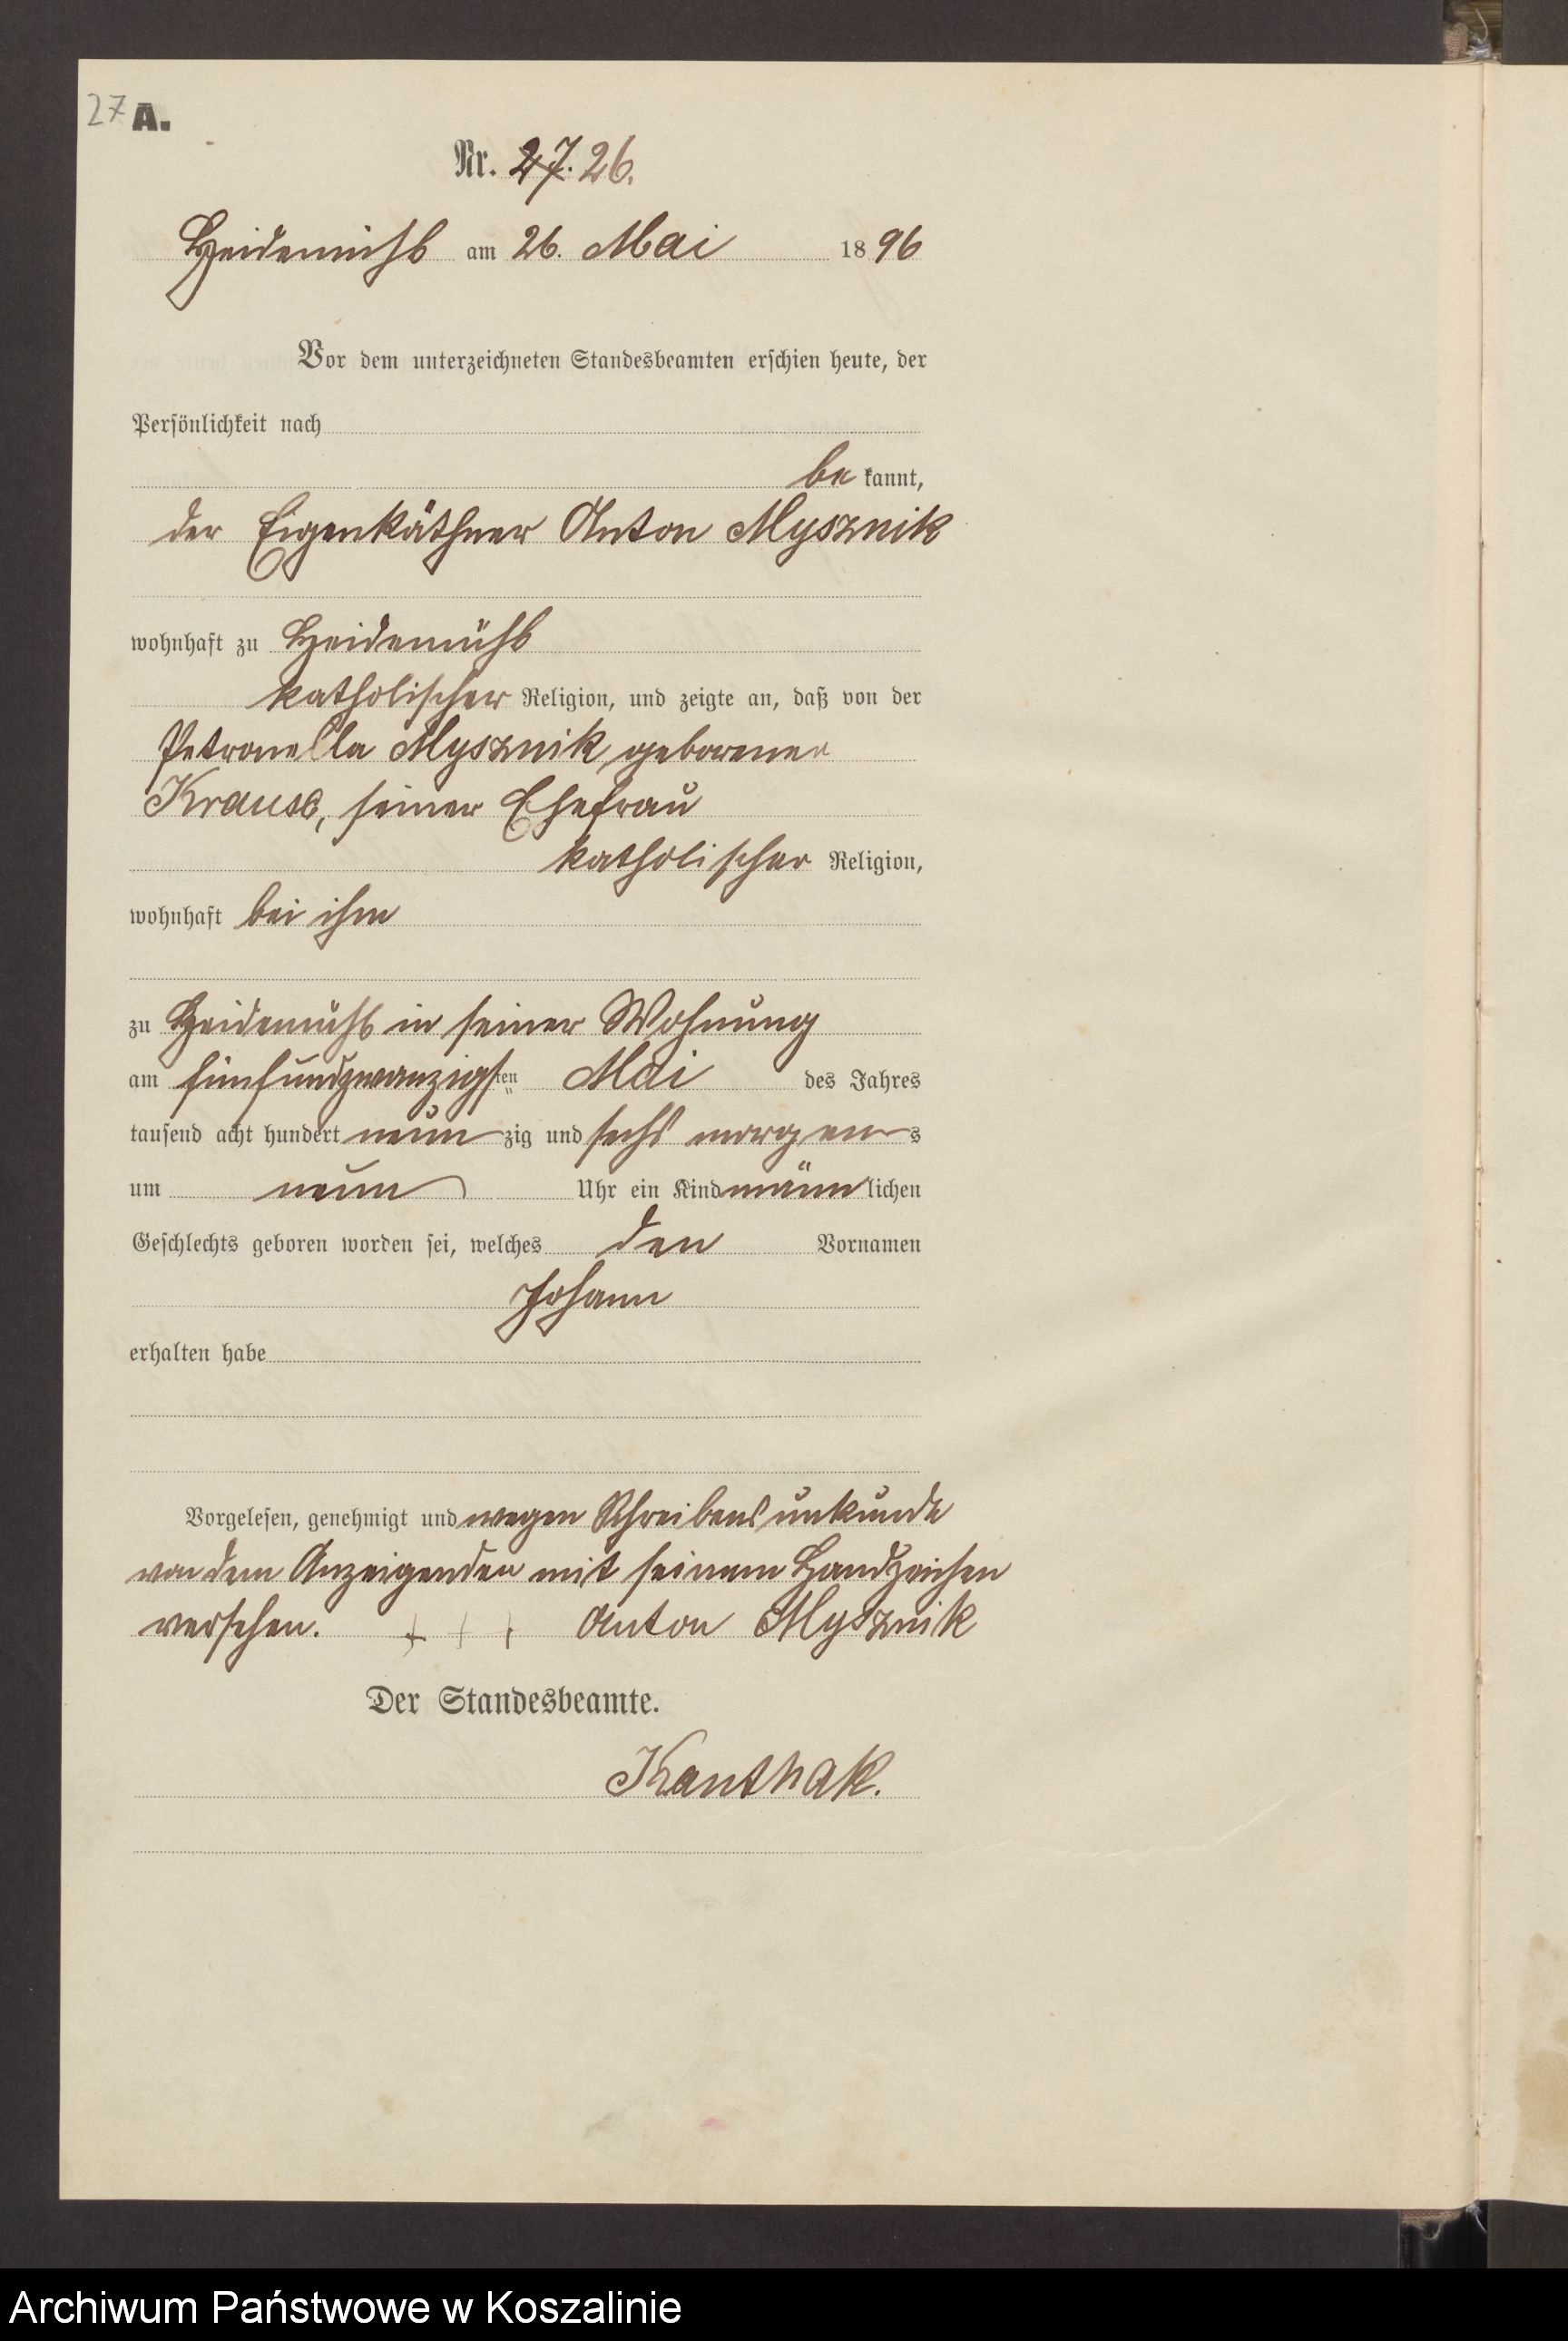 27 A.
Nr. 27. 26.
Heidemühl am 26. Mai 1896
Vor dem unterzeichneten Standesbeamten erschien heute, der
Persönlichkeit nach
be kannt,
der Eigenkäthner Anton Mysznik
wohnhaft zu Heidemühl
katholischer Religion, und zeigte an, daß von der
Petronella Mysznik, geborenen
Krause, seiner Ehefrau
katholischer Religion,
wohnhaft bei ihm
zu Heidemühl in seiner Wohnung
am fünfundzwanzigsten Mai des Jahres
tausend acht hundert neun zig und sechs morgens
um neun Uhr ein Kind männlichen
Geschlechts geboren worden sei, welches den Vornamen
Johann
erhalten habe
Vorgelesen, genehmigt und wegen Schreibensunkunde
von dem Anzeigenden mit seinem Handzeichen
versehen. + + + Anton Mysznik
Der Standesbeamte.
Kanthak.
Archiwum Państwowe w Koszalinie